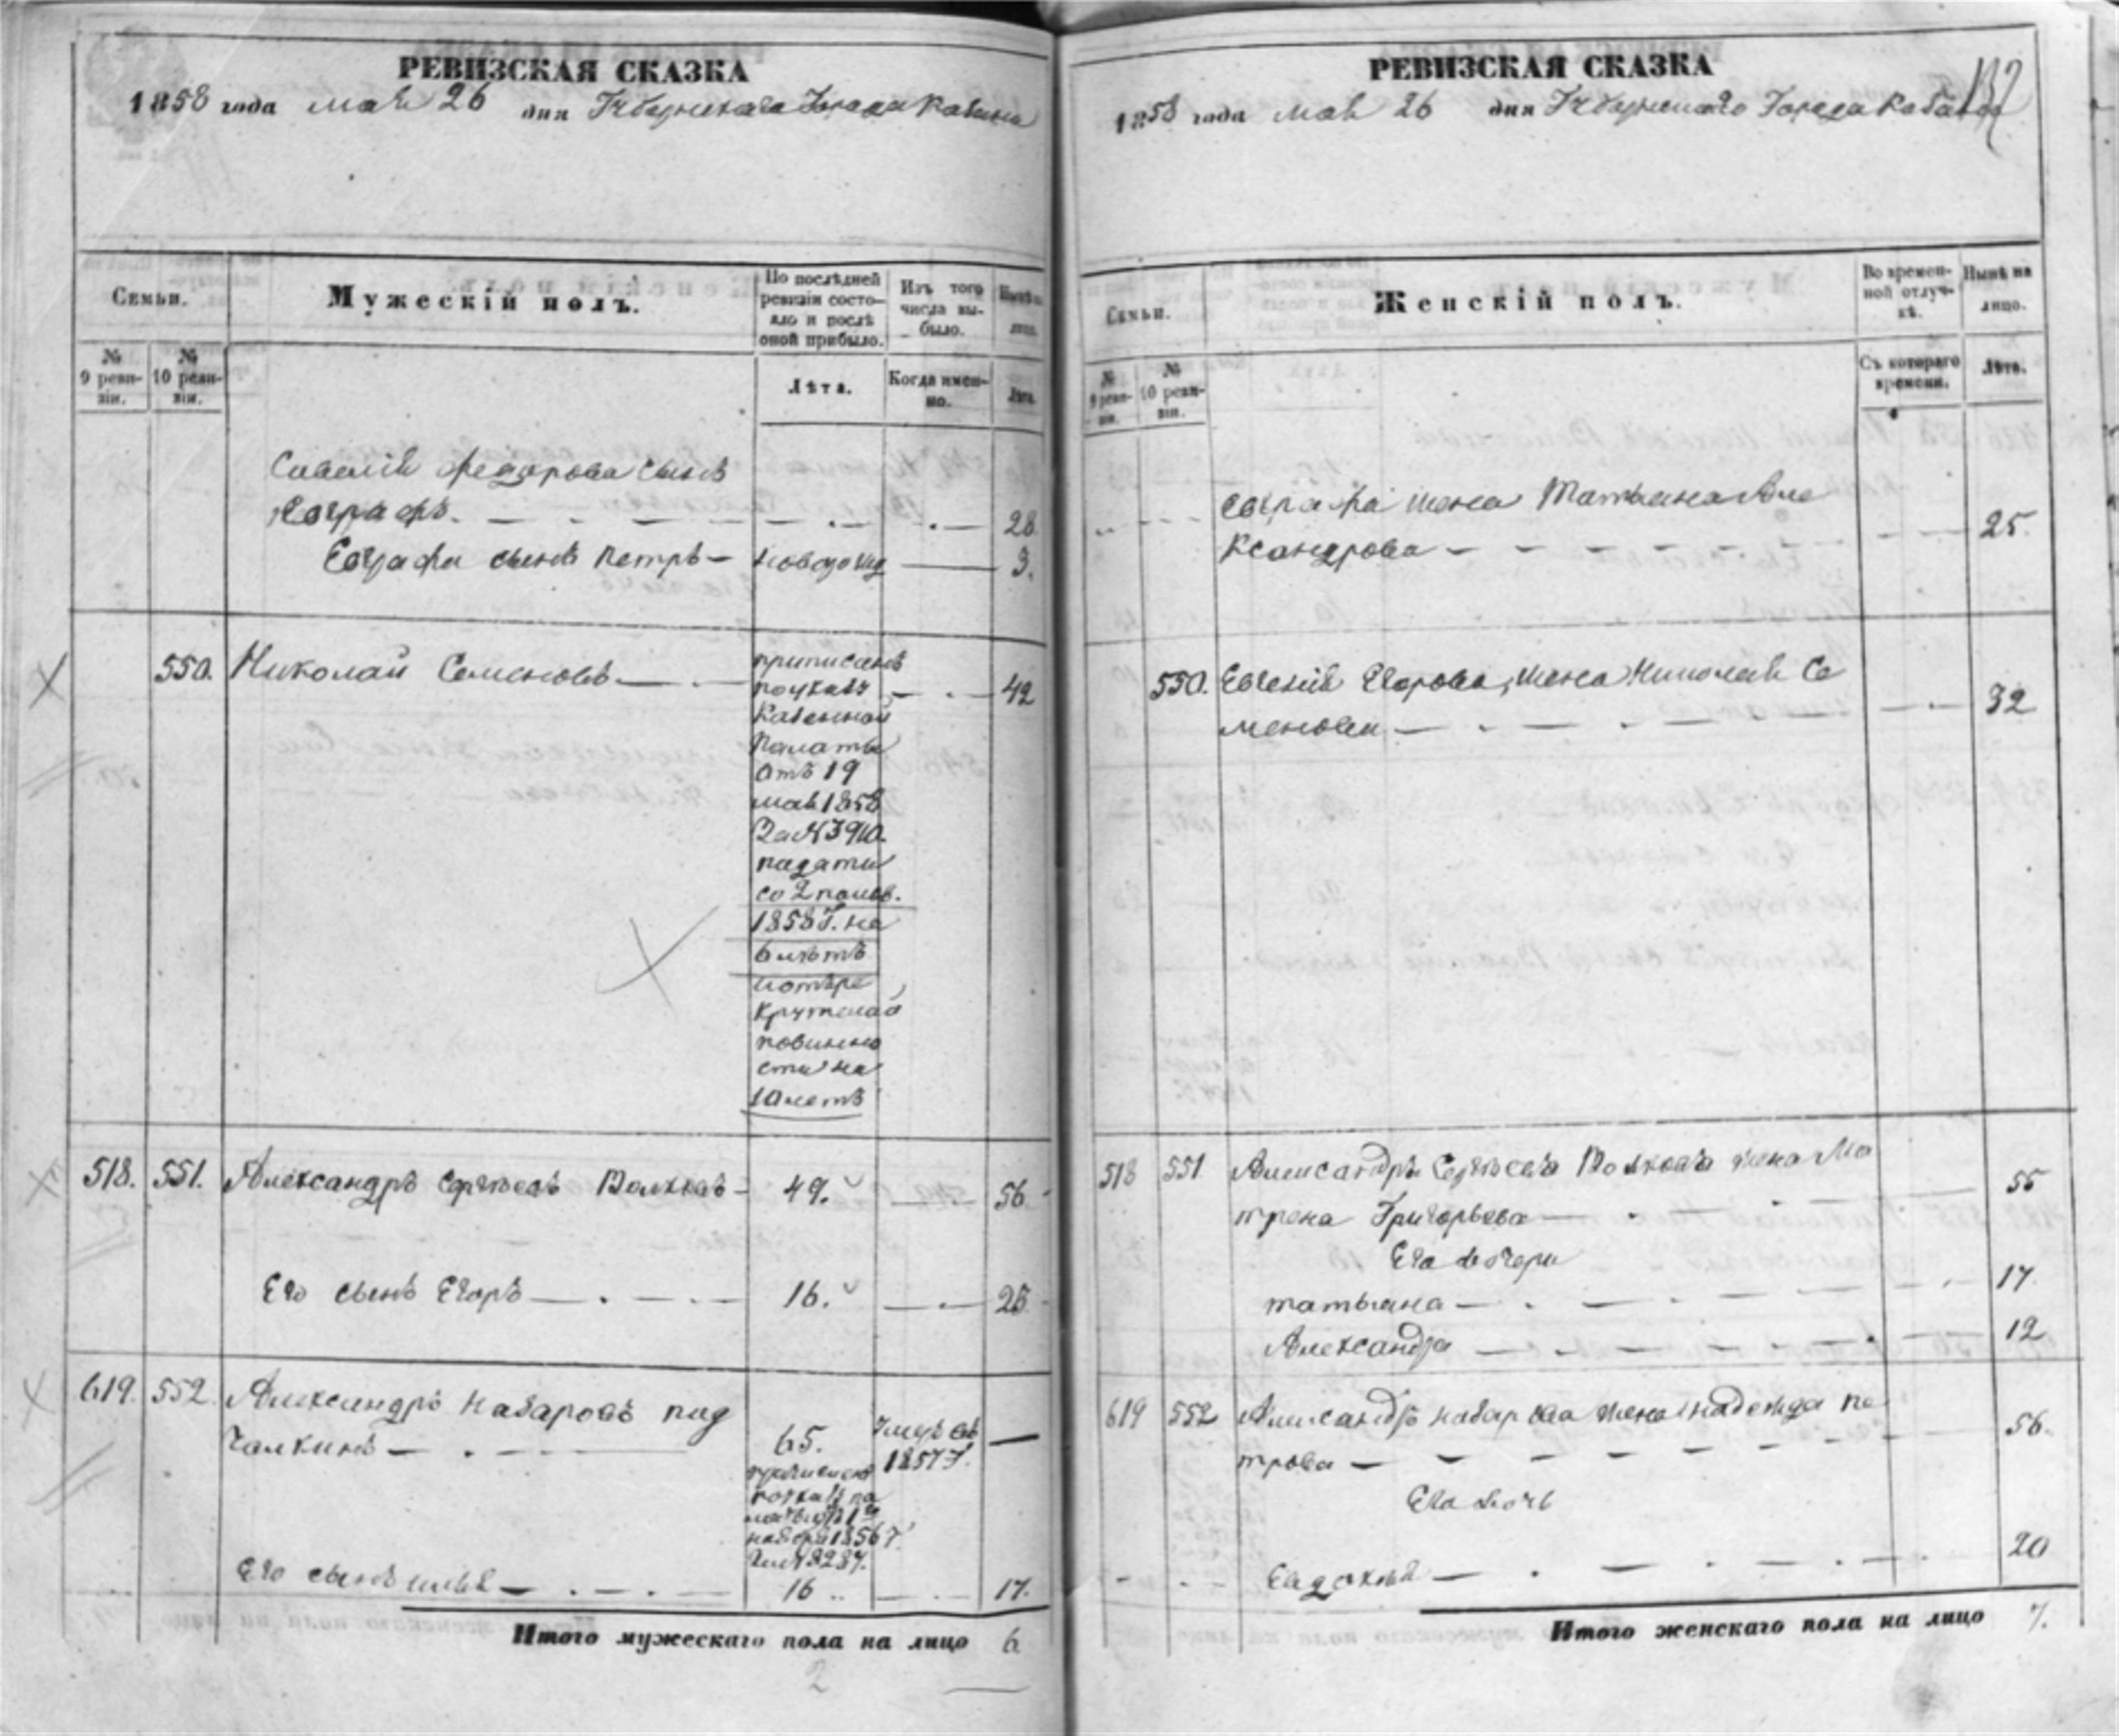 РЕВИЗСКАЯ СКАЗКА
1858 года мая 26 дня Губернскаго Города Казани
Семьи.
Мужескій полъ.
По послѣдней ревизіи состо-
яло и послѣ
оной прибыло.
Изъ того
числа вы-
было.
Нынѣ на
лицо.
№
9 реви-
зіи.
№
10 реви-
зіи.
Лѣта.
Когда имен-
но.
Лѣта.
Федорова сынъ
Евграфъ. 28
Евграфа сынъ Петръ — 3.
550. Николай Семеновъ — приписанъ 42
по указу
Казенной
Палаты
отъ 19
мая 1858
За № 3910.
падати
со 2 полов.
1858 Г. на
6 лѣтъ
ирекрутской
повинно
сти на
10 летъ
518. 551. Александръ Сергѣевъ Волковъ — 49. 56
Его сынъ Егоръ — 16. 25
619. 552. Александръ Назаровъ под
галкинъ — 65. Умеръ въ
1857 Г. —
Его сынъ 16 17.
Итого мужескаго пола на лицо 6
2
РЕВИЗСКАЯ СКАЗКА
132
1858 года мая 26 дня Губернскаго Города Казани
Семьи.
Женскій полъ.
Во времен-
ной отлуч-
кѣ.
Нынѣ на
лицо.
№
9 реви-
зіи.
№
10 реви-
зіи.
Съ котораго
времени.
Лѣта.
Евграфа жена Татьяна Але
ксандрова — 25.
550. Евгенія Егорова, жена Николая Се
менова — 32
518 551 Александръ Сергѣева Волкова жена Ма
трена Григорьева — 55
Его дочери
татьяна — 17
Александра — 12
619 552 Александръ назарова жена надежда пе
трова — 56.
Его дочь
Евдокія — 20
Итого женскаго пола на лицо 7.